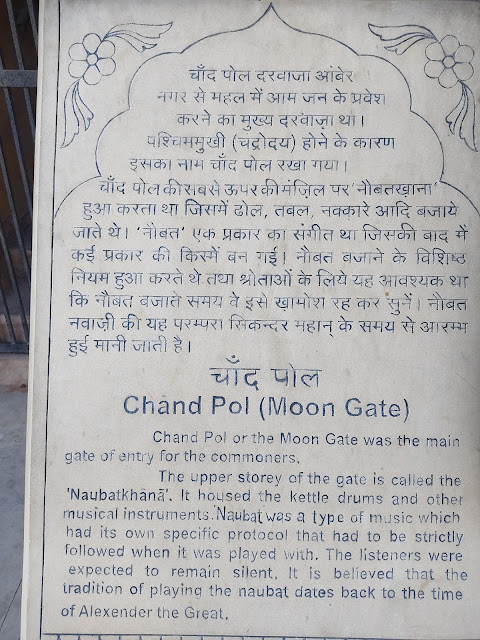 चाँद पोल दरवाजा आंबेर
नगर से महल में आम जन के प्रवेश
करने का मुख्य दरवाज़ा था।
पश्चिममुखी (चद्रोदय) होने के कारण
इसका नाम चाँद पोल रखा गया।
चाँद पोल की सबसे ऊपर की मंज़िल पर 'नौबतखाना'
हुआ करता था जिसमें ढोल, तबल, नक्कारे आदि बजाये
जाते थे। 'नौबत' एक प्रकार का संगीत था जिसकी बाद में
कई प्रकार की किस्में बन गई। नौबत बजाने के विशिष्ठ
नियम हुआ करते थे तथा श्रोताओं के लिये यह आवश्यक था
कि नौबत बजाते समय वे इसे खामोश रह कर सुनें। नौबत
नवाज़ी की यह परम्परा सिकन्दर महान् के समय से आरम्भ
हुई मानी जाती है।
चाँद पोल
Chand Pol (Moon Gate)
Chand Pol or the Moon Gate was the main
gate of entry for the commoners.
The upper storey of the gate is called the
'Naubatkhānā'. It housed the kettle drums and other
musical instruments. Naubat was a type of music which
had its own specific protocol that had to be strictly
followed when it was played with. The listeners were
expected to remain silent. It is believed that the
tradition of playing the naubat dates back to the time
of Alexender the Great.